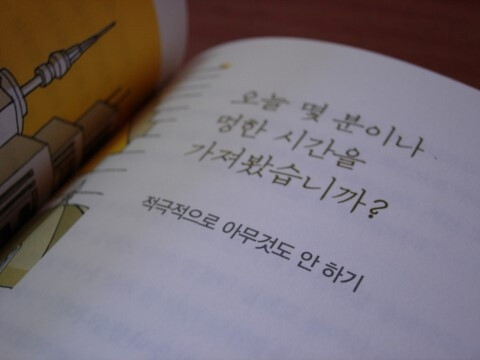 오늘 몇 분이나
멍한 시간을
가져봤습니까?
적극적으로 아무것도 안 하기